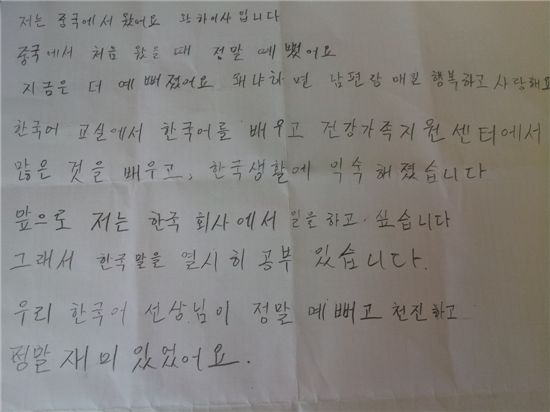 저는 중국에서 왔어요 완하이사입니다
중국에서 처음 왔을 때 정말 예뻤어요
지금은 더 예뻐졌어요 왜냐하면 남편랑 매일 행복하고 사랑해요
한국어 교실에서 한국어를 배우고 건강가족지원센터에서
많은 것을 배우고, 한국생활에 익숙해졌습니다
앞으로 저는 한국 회사에서 일을 하고 싶습니다
그래서 한국말을 열시히 공부 있습니다.
우리 한국어 선상님이 정말 예뻐고 천진하고
정말 재미있었어요.